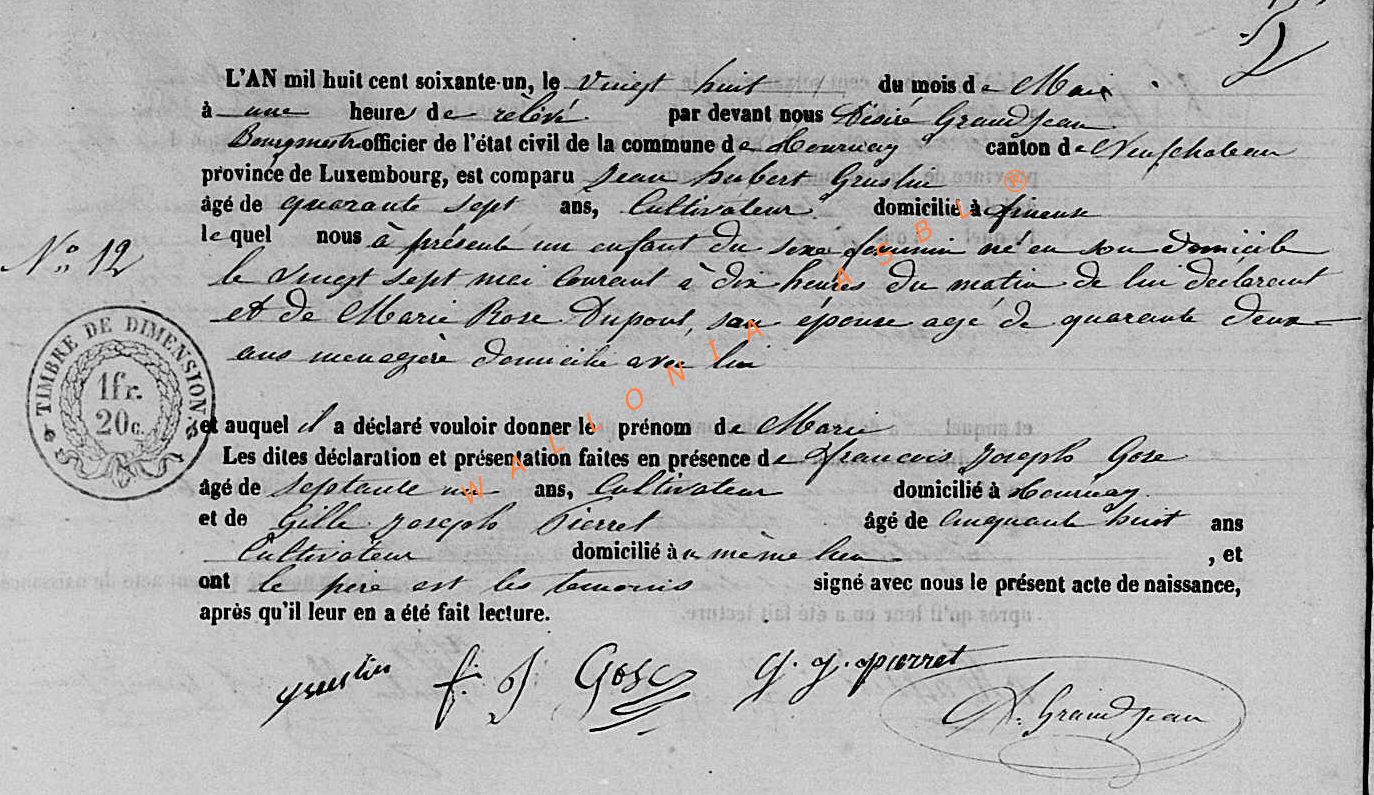 L'AN mil huit cent soixante-un, le vingt huit du mois de Mai
à une heure de relevé par devant nous Désiré Grandjean
Bourgmestre officier de l'état civil de la commune de Tournay canton de Neufchateau
province de Luxembourg, est comparu Jean hubert
âgé de quarante sept ans, Cultivateur domicilié à
lequel nous à présenté un enfant du sexe feminin né en son domicile
No 12
le vingt sept mai courant à dix heures du matin de lui déclarant
et de Marie Rose Dupont, son épouse agé de quarante deux
ans menagère domicilié avec lui
TIMBRE DE DIMENSION.
1fr.
20c.
et auquel il a déclaré vouloir donner le prénom de Marie
Les dites déclaration et présentation faites en présence de francois Joseph Gose
âgé de septante un ans, Cultivateur domicilié à Tournay
et de Gille Joseph Pierret âgé de Cinquante huit ans
Cultivateur domicilié à même lieu , et
ont le père est les temouis signé avec nous le présent acte de naissance,
après qu'il leur en a été fait lecture.
f. J Gose g. j. pierret
D. Grandjean
WALLONIA ASBL ®